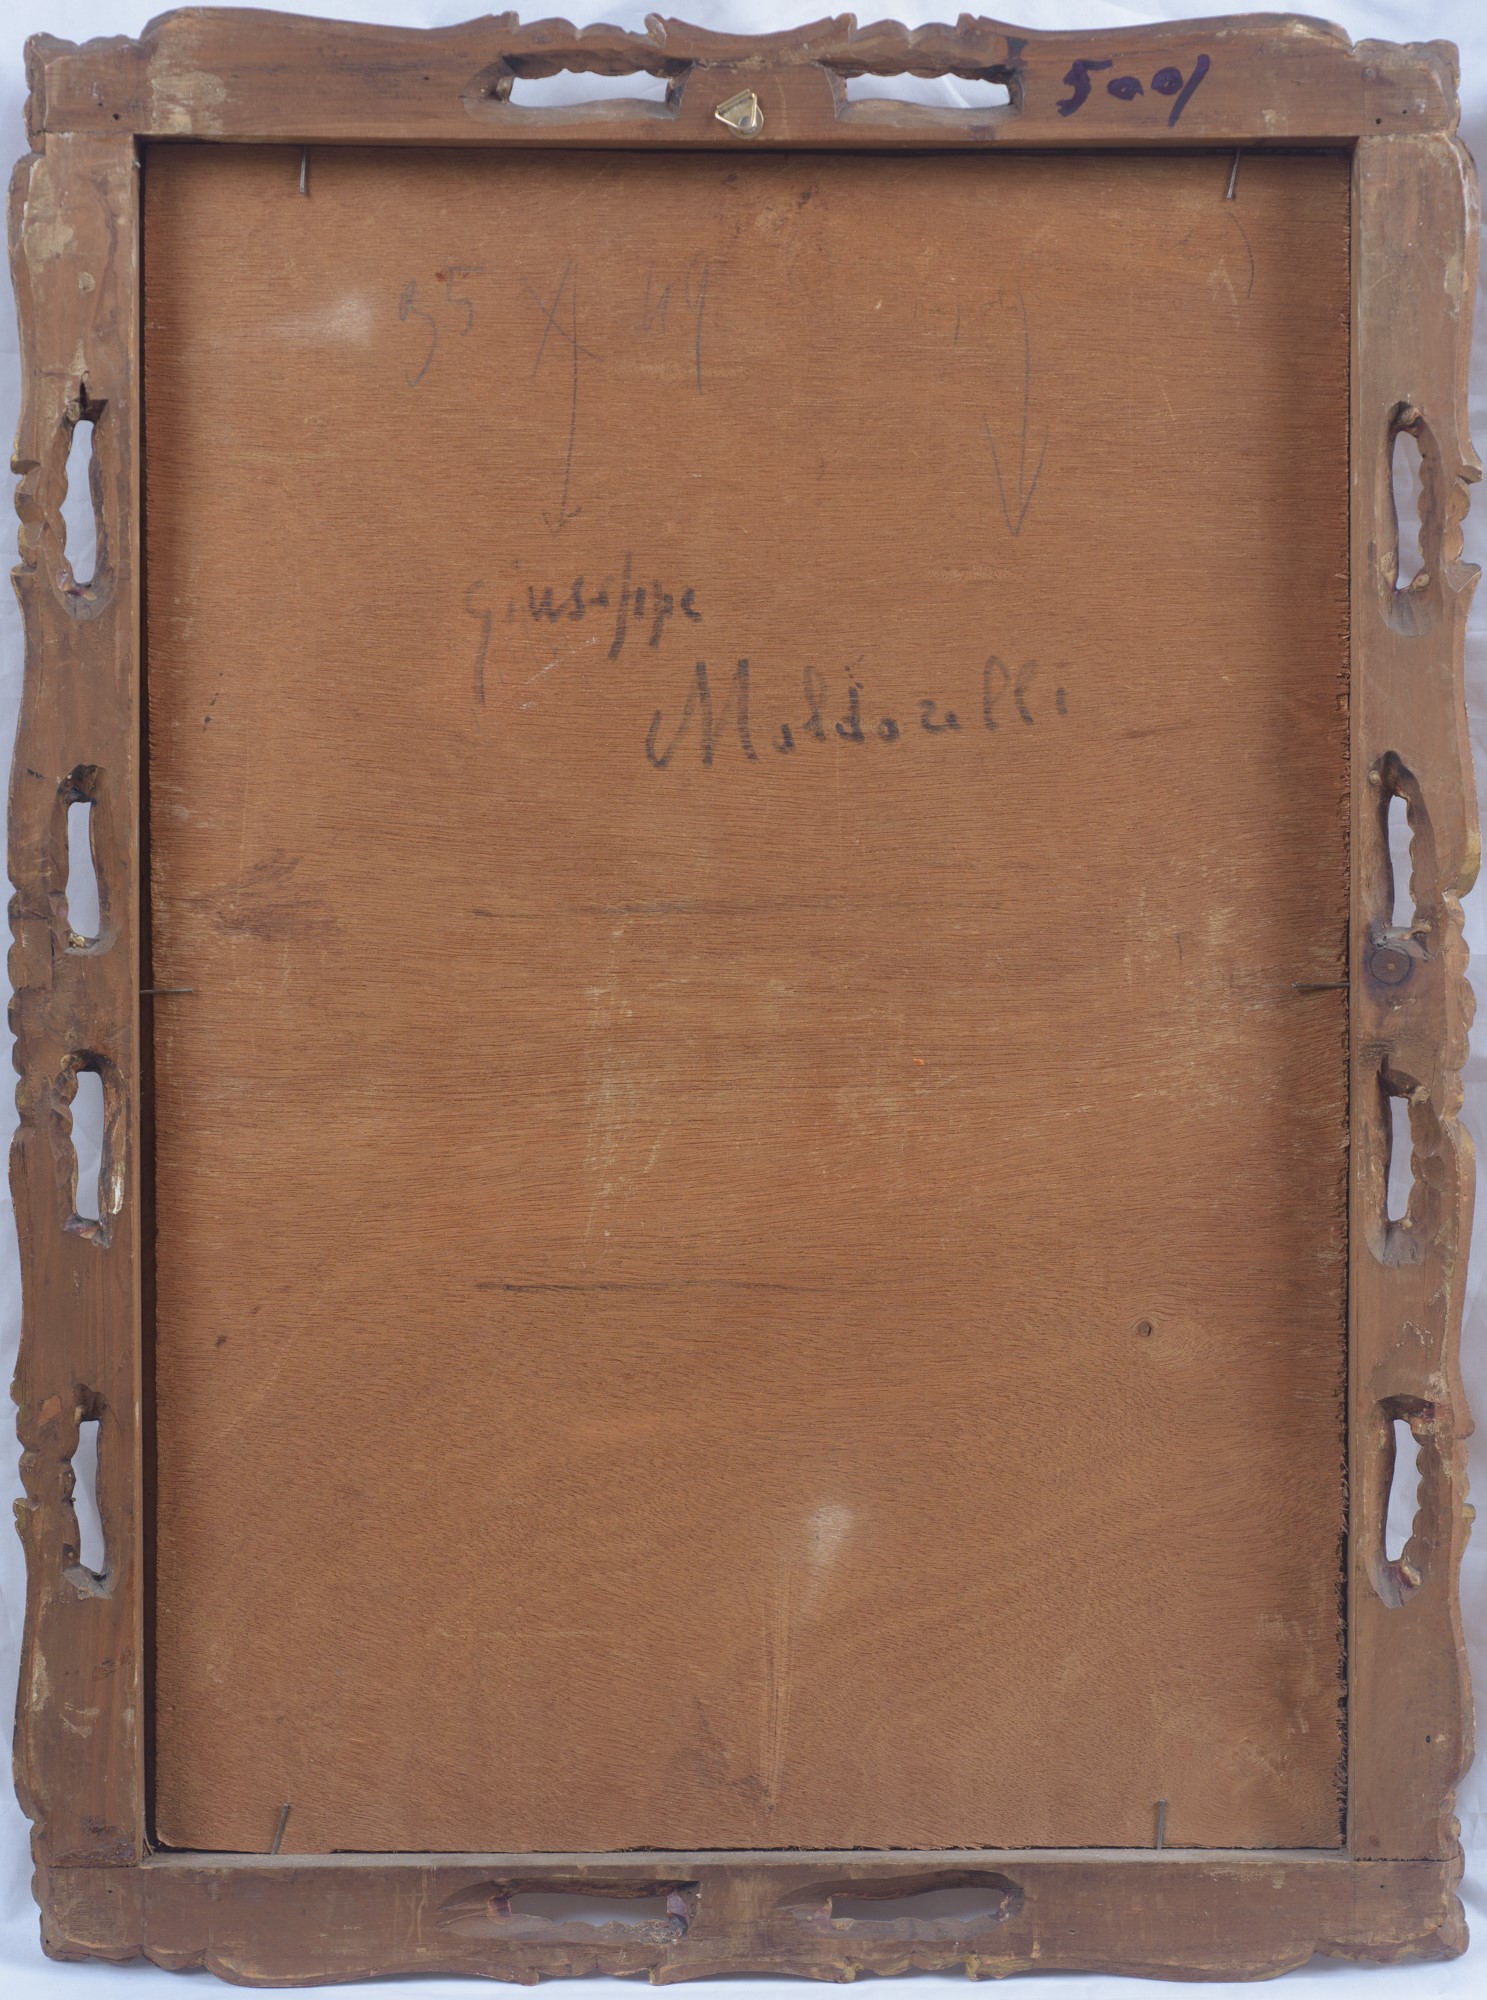 5001
35 x 49
Giuseppe
Moldorelli